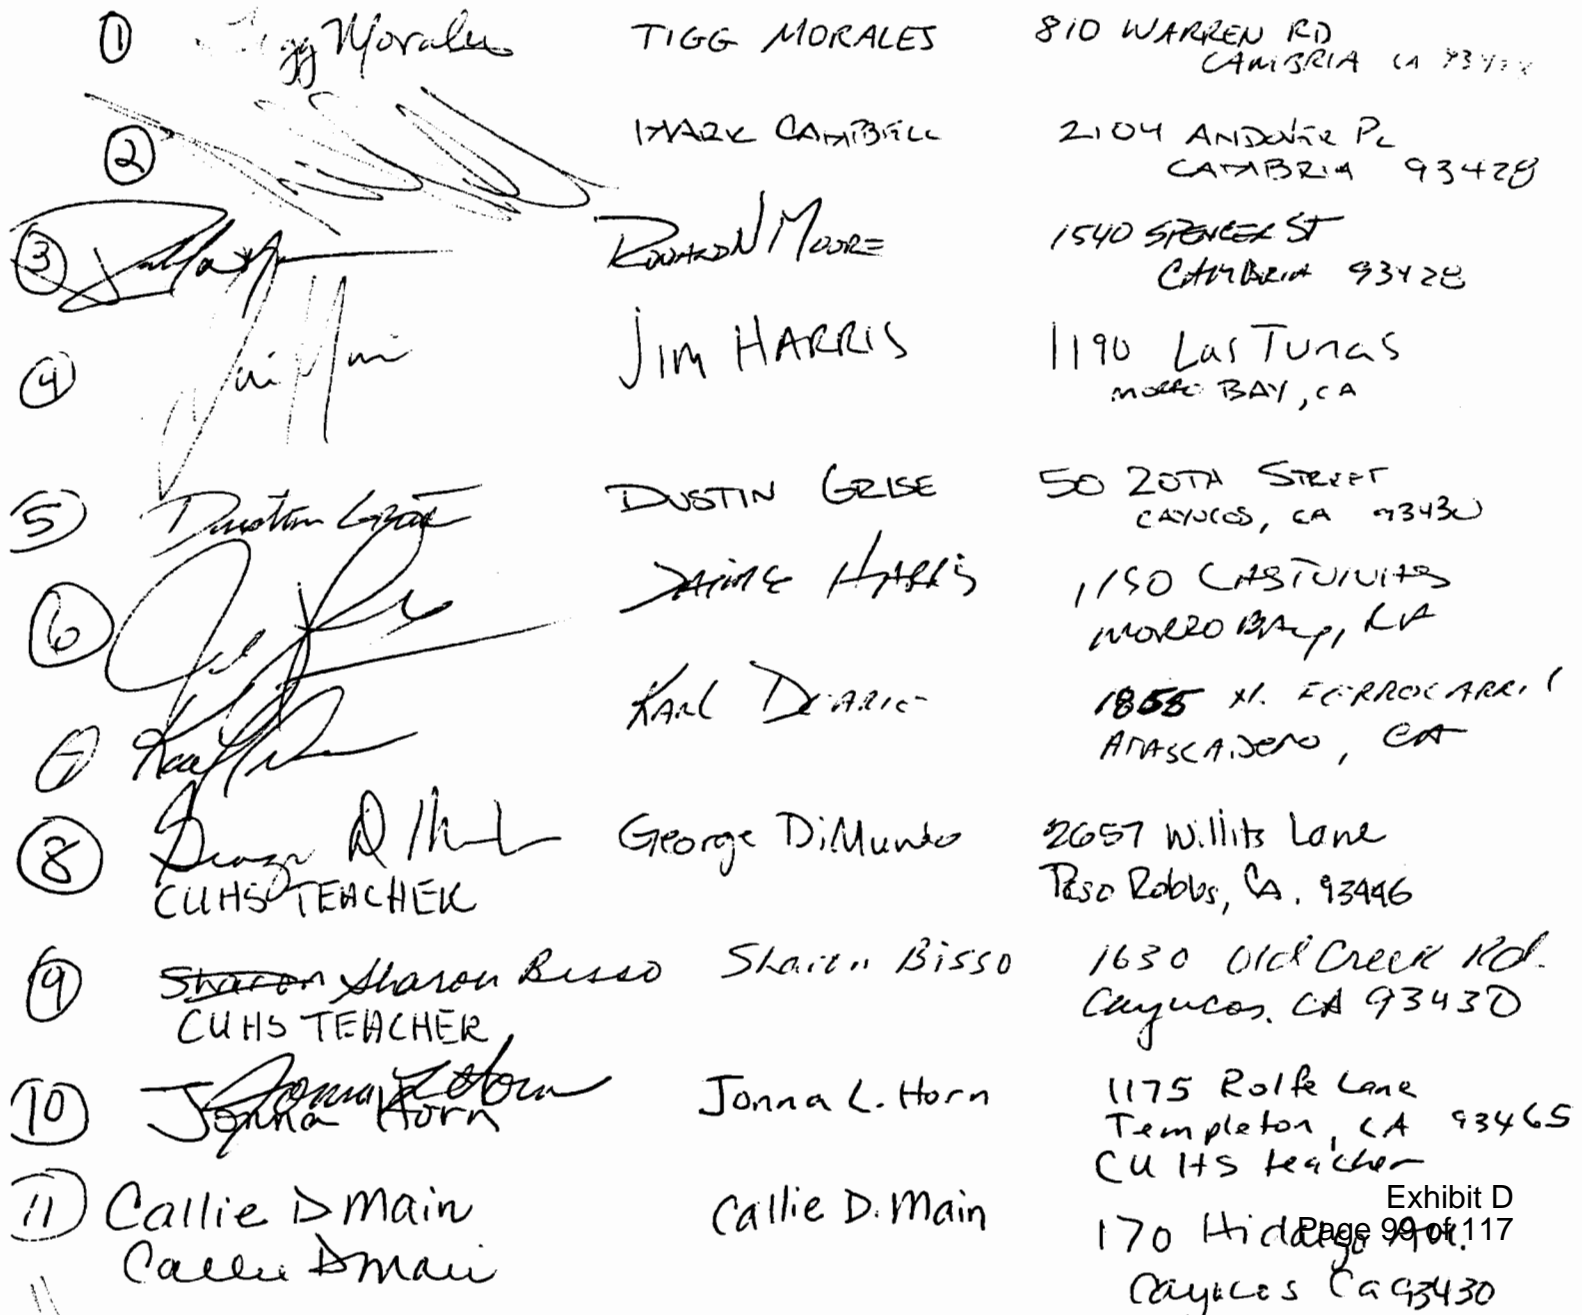 1 Tigg Morales TIGG MORALES 810 WARREN RD
CAMBRIA CA 93428
2 MARK CAMPBELL 2104 ANDOVER PL
CAMBRIA 93428
3 MOORE 1540 SPENCER ST
CAMBRIA 93428
4 JIM HARRIS 1190 Las Tunas
MORRO BAY, CA
5 Dustin Grise DUSTIN GRISE 50 20TH STREET
CAYUCOS, CA 93430
6 JAIME HARRIS 1190 LAS TUNAS
MORRO BAY, CA
7 KARL 1855 N. FERROCARRIL
ATASCADERO, CA
8 George DiMundo 2657 Willits Lane
CUHS TEACHER Paso Robles, CA. 93446
9 Sharon Sharon Bisso Sharon Bisso 1630 Old Creek Rd.
CUHS TEACHER Cayucos, CA 93430
10 Jonna L Horn Jonna Horn Jonna L. Horn 1175 Rolfe Lane
Templeton, CA 93465
CUHS teacher
11 Callie D Main Callie D. Main 170 Hidalgo Ave.
Callie D Main Cayucos Ca 93430
Exhibit D
Page 99 of 117